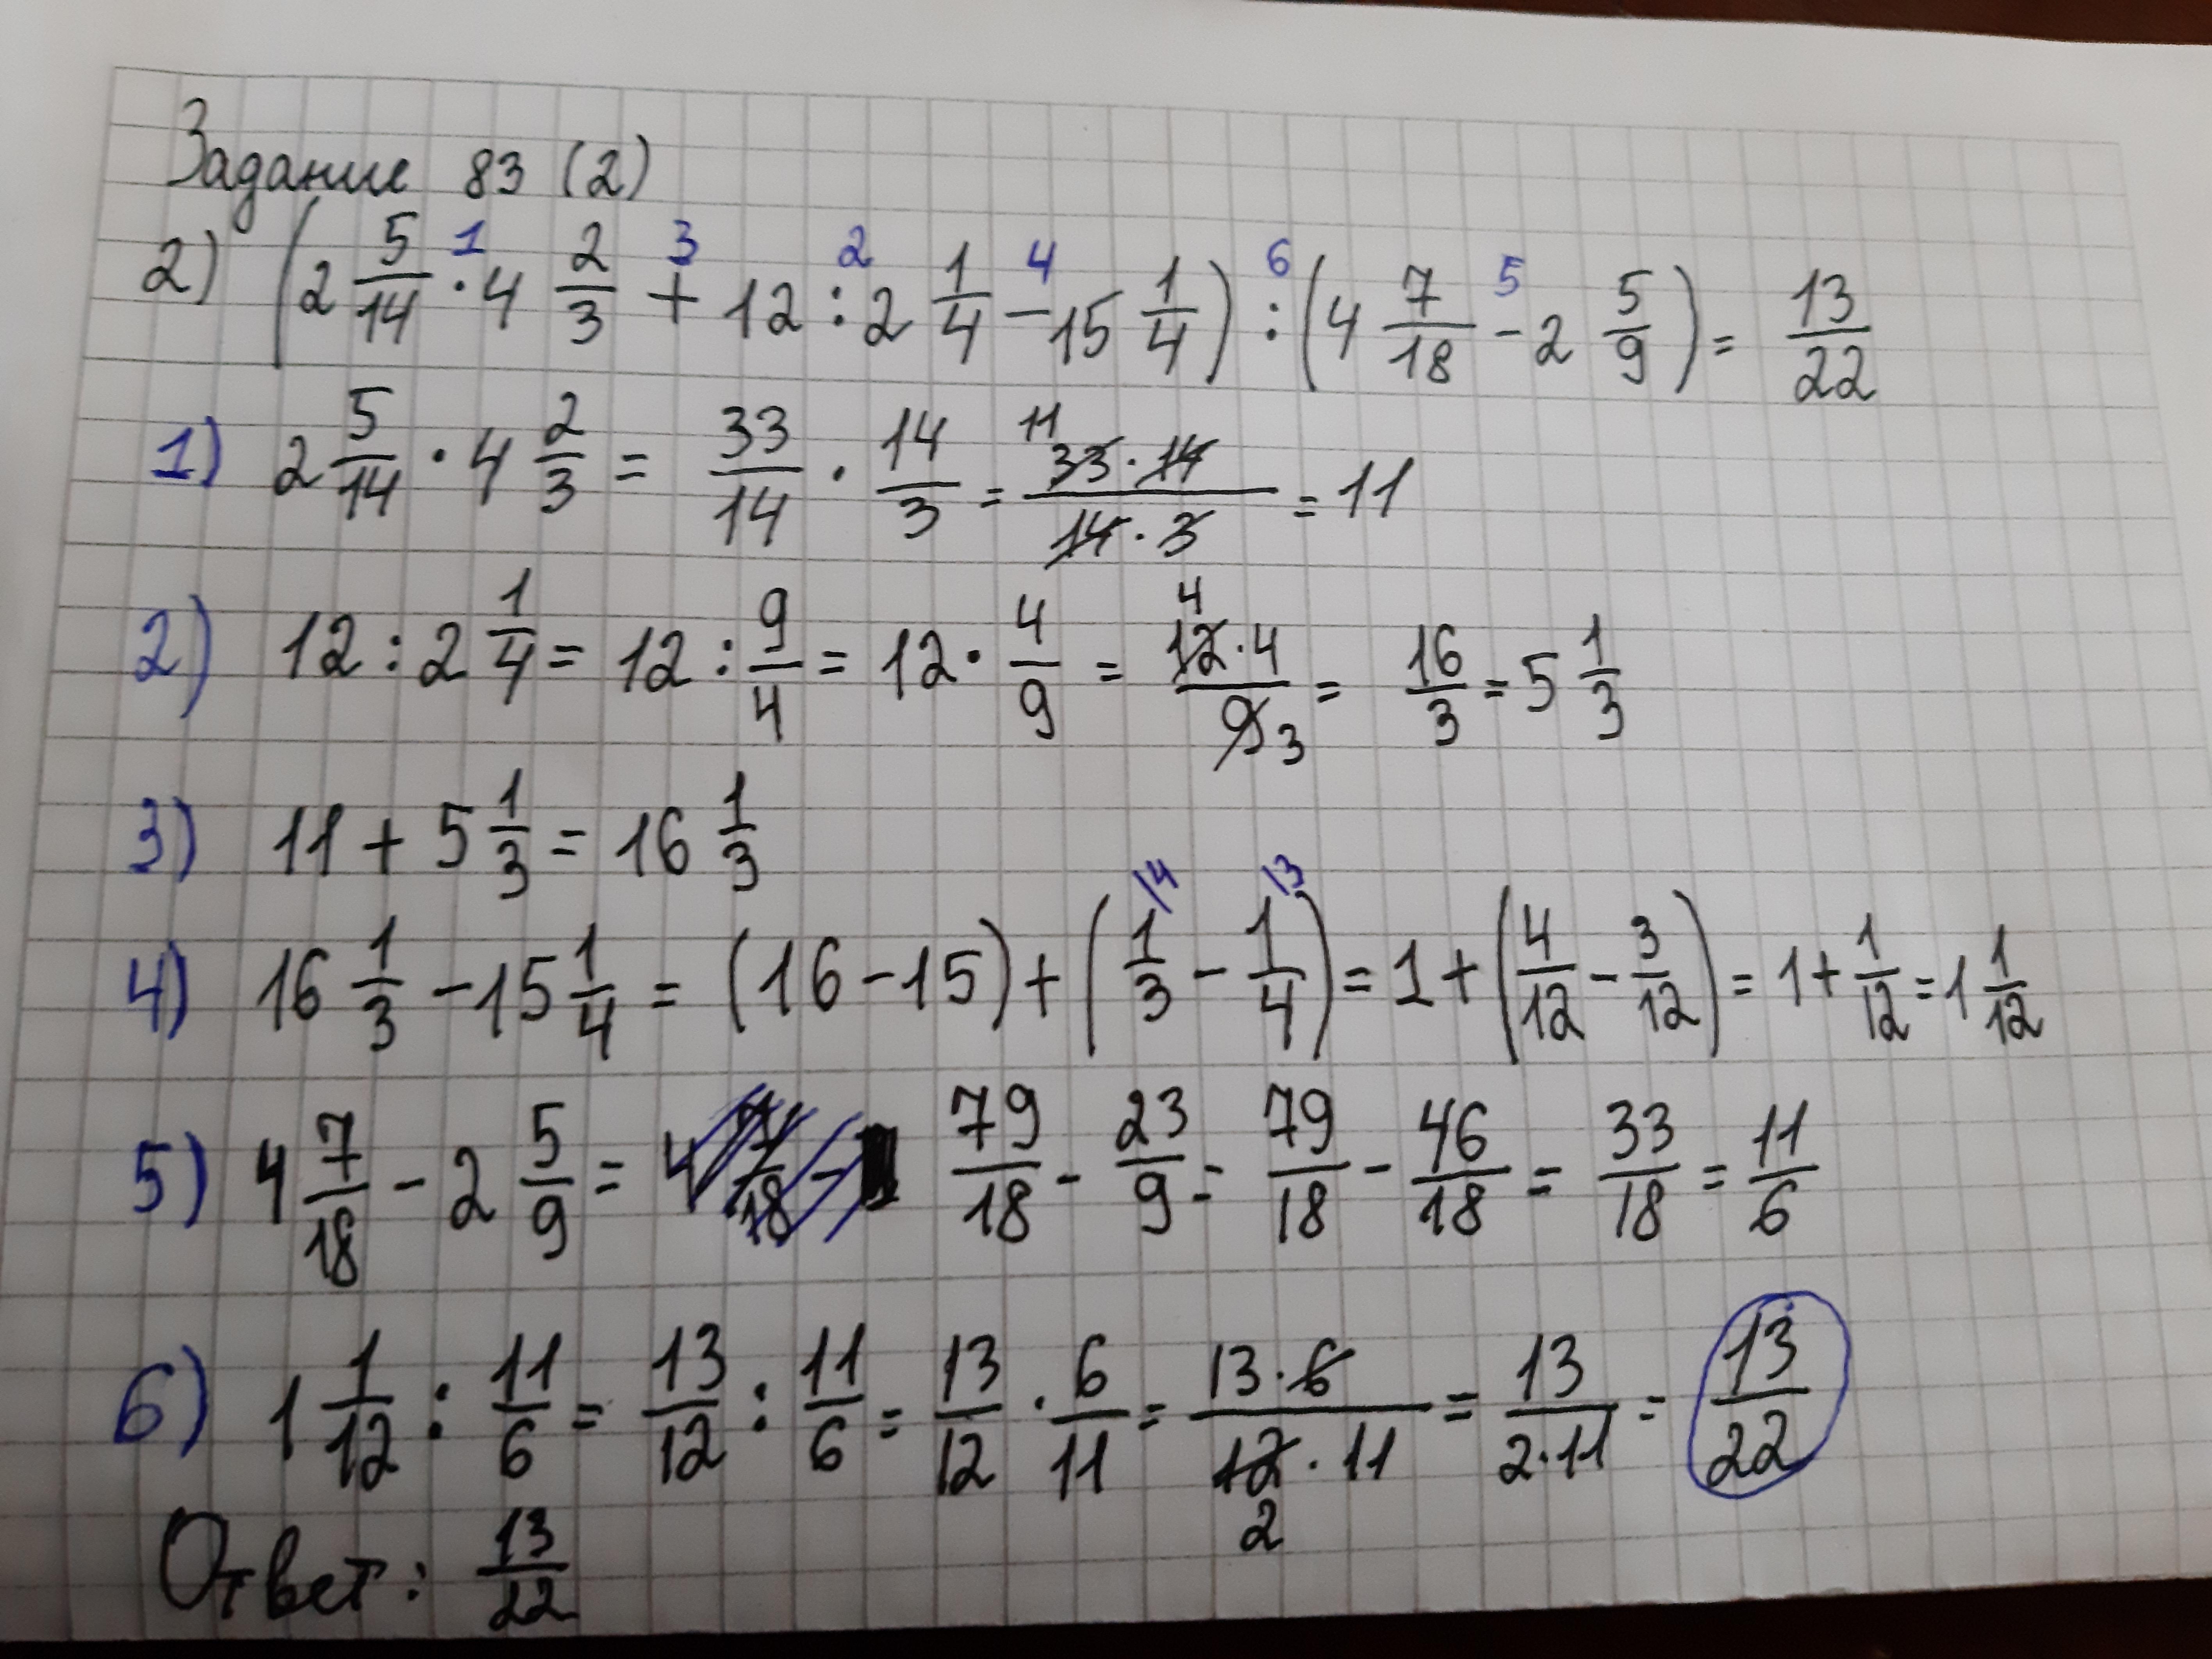 Задание 83 (2)
2) (2 5/14 · 4 2/3 + 12 : 2 1/4 − 15 1/4) : (4 7/18 − 2 5/9) = 13/22
1 3 2 4 6 5
1) 2 5/14 · 4 2/3 = 33/14 · 14/3 = 33·14/14·3 = 11
11
2) 12 : 2 1/4 = 12 : 9/4 = 12 · 4/9 = 12·4/9 = 16/3 = 5 1/3
4 3
3) 11 + 5 1/3 = 16 1/3
4) 16 1/3 − 15 1/4 = (16 − 15) + (1/3 − 1/4) = 1 + (4/12 − 3/12) = 1 + 1/12 = 1 1/12
\4 \3
5) 4 7/18 − 2 5/9 = 4 7/18 − 79/18 − 23/9 = 79/18 − 46/18 = 33/18 = 11/6
6) 1 1/12 : 11/6 = 13/12 : 11/6 = 13/12 · 6/11 = 13·6/12·11 = 13/2·11 = 13/22
2
Ответ: 13/22